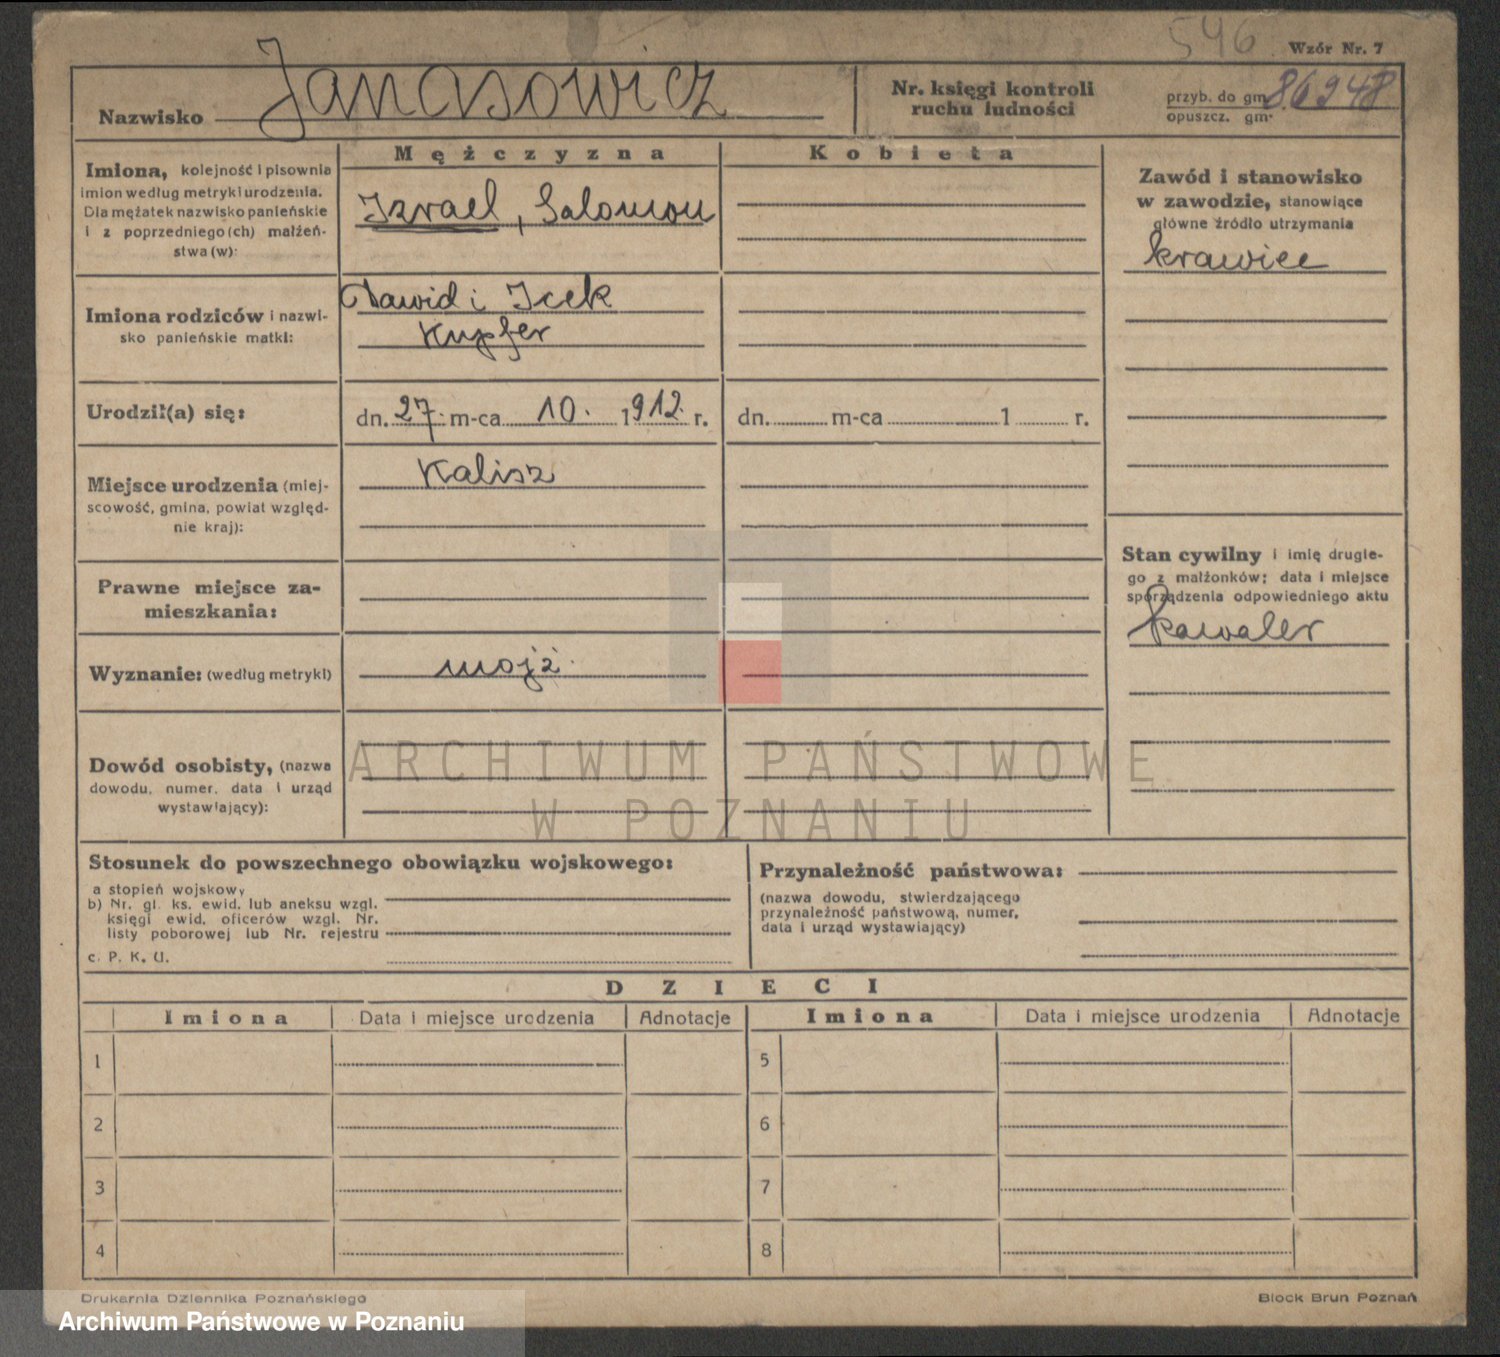 546
Wzór Nr. 7
Nazwisko Janasowicz
Nr. księgi kontroli
ruchu ludności
przyb. do gm. 86948
opuszcz. gm.
Imiona, kolejność i pisownia
imion według metryki urodzenia.
Dla mężatek nazwisko panieńskie
i z poprzedniego (ch) małżeń-
stwa (w):
Mężczyzna
Izrael, Salomon
Kobieta
Zawód i stanowisko
w zawodzie, stanowiące
główne źródło utrzymania
krawiec
Imiona rodziców i nazwi-
sko panieńskie matki:
Dawid i Icek
Kupfer
Urodził(a) się:
dn. 27. m-ca 10. 1912. r.
dn. m-ca 1 r.
Miejsce urodzenia (miej-
scowość, gmina, powiat względ-
nie kraj):
Kalisz
Prawne miejsce za-
mieszkania:
Stan cywilny i imię drugie-
go z małżonków; data i miejsce
sporządzenia odpowiedniego aktu
kawaler
Wyznanie: (według metryki)
mojż.
Dowód osobisty, (nazwa
dowodu, numer, data i urząd
wystawiający):
ARCHIWUM PAŃSTWOWE
W POZNANIU
Stosunek do powszechnego obowiązku wojskowego:
a stopień wojskowy
b) Nr. gł. ks. ewid. lub aneksu wzgl.
księgi ewid. oficerów wzgl. Nr.
listy poborowej lub Nr. rejestru
c. P. K. U.
Przynależność państwowa:
(nazwa dowodu, stwierdzającego
przynależność państwową, numer,
data i urząd wystawiający)
DZIECI
Imiona Data i miejsce urodzenia Adnotacje Imiona Data i miejsce urodzenia Adnotacje
1 5
2 6
3 7
4 8
Drukarnia Dziennika Poznańskiego
Block Brun Poznań
Archiwum Państwowe w Poznaniu